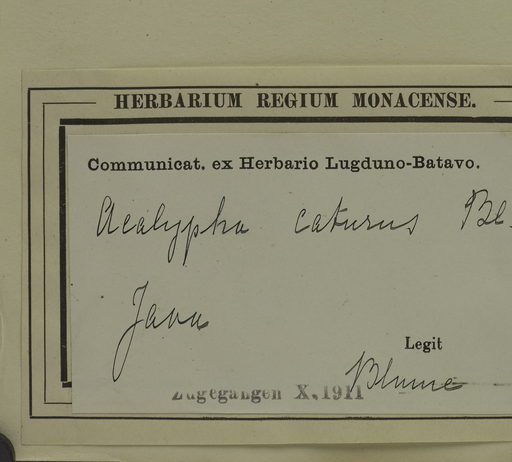 HERBARIUM REGIUM MONACENSE.
Communicat. ex Herbario Lugduno-Batavo.
Acalypha caturus Bl.
Java
Legit
Blume
Zugegangen X. 1911